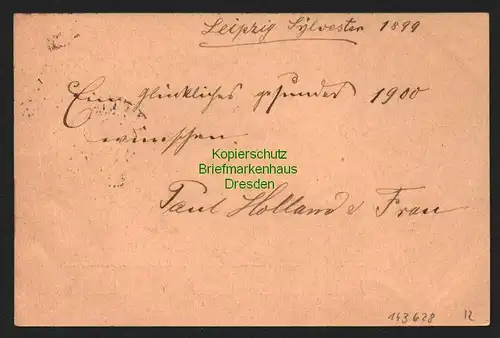 Leipzig Sylvester 1899
Ein glückliches gesundes 1900
wünschen
Kopierschutz
Briefmarkenhaus
Dresden
Paul Holland & Frau
143628 12